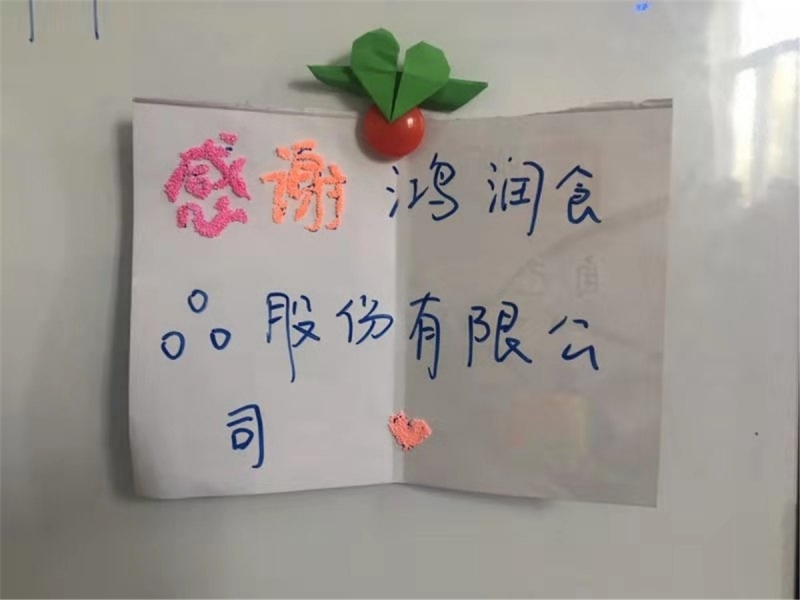 感谢鸿润食
品股份有限公
司